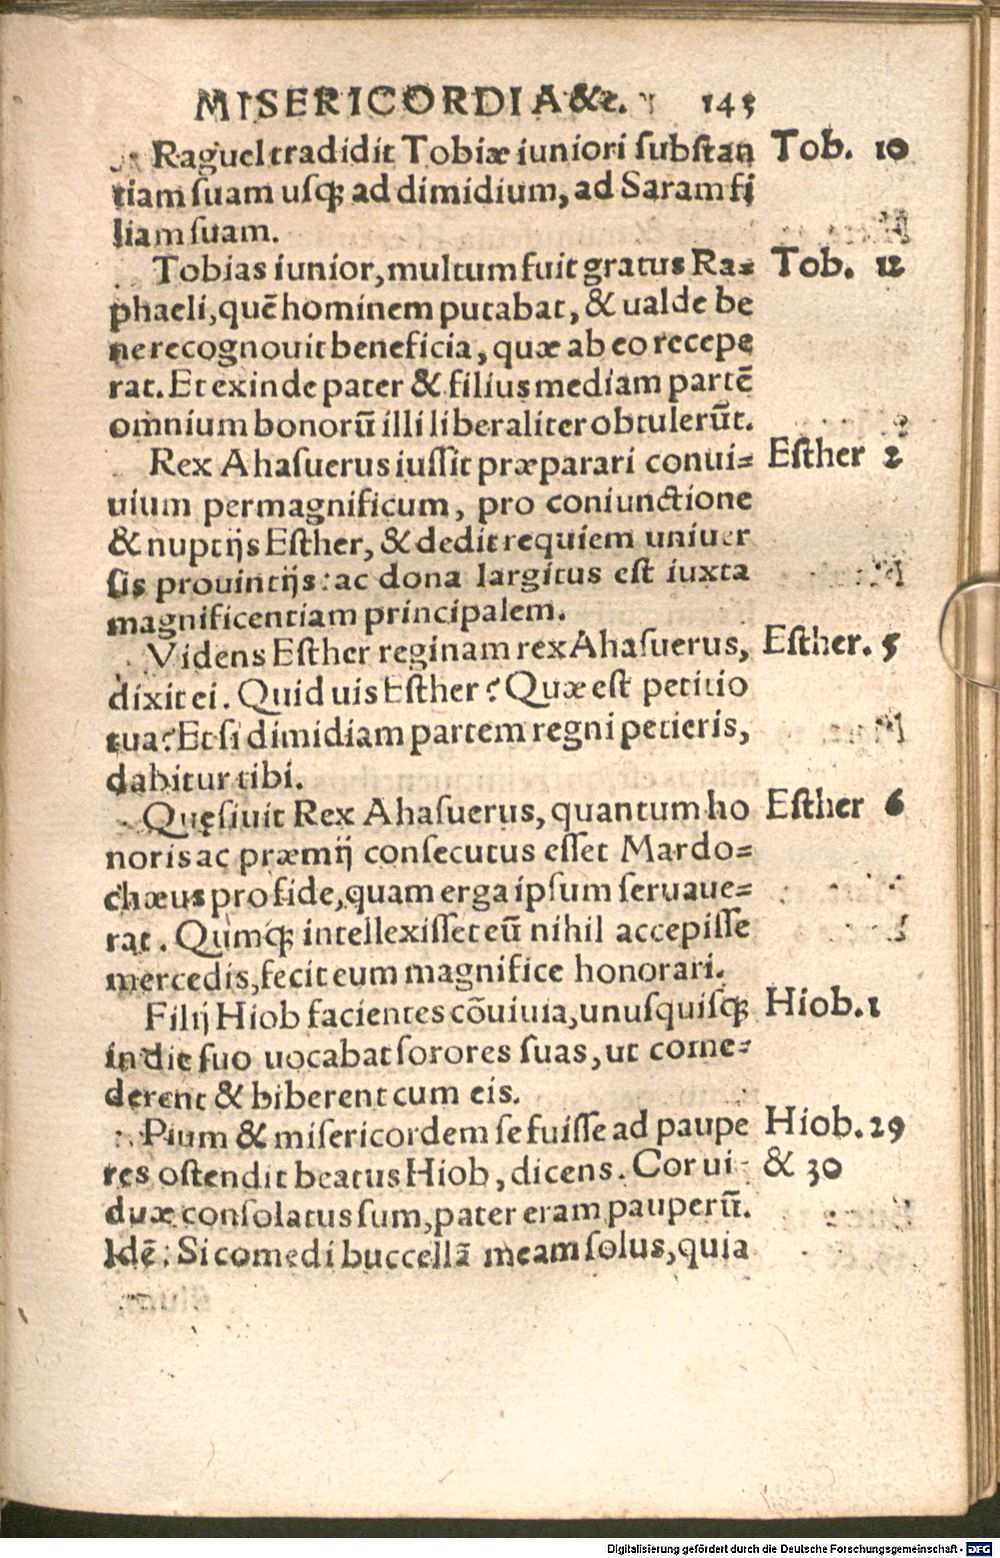 MISERICORDIA &c. 145
Raguel tradidit Tobiæ iuniori ſubſtan Tob. 10
tiam ſuam uſq; ad dimidium, ad Saram fi
liam ſuam.
Tobias iunior, multum fuit gratus Ra= Tob. 12
phaeli, quē hominem putabat, & ualde be
ne recognouit beneficia, quæ ab eo recepe
rat. Et exinde pater & filius mediam partē
omnium bonorū illi liberaliter obtulerūt.
Rex Ahaſuerus iuſſit præparari conui= Eſther 2
uium permagnificum, pro coniunctione
& nuptijs Eſther, & dedit requiem uniuer
ſis prouintijs: ac dona largitus eſt iuxta
magnificentiam principalem.
Videns Eſther reginam rex Ahaſuerus, Eſther. 5
dixit ei. Quid uis Eſther? Quæ eſt petitio
tua? Et ſi dimidiam partem regni petieris,
dabitur tibi.
Quęſiuit Rex Ahaſuerus, quantum ho Eſther 6
noris ac præmij conſecutus eſſet Mardo=
chæus pro fide, quam erga ipſum ſeruaue=
rat. Qumq; intellexiſſet eū nihil accepiſſe
mercedis, fecit eum magnifice honorari.
Filij Hiob facientes cōuiuia, unuſquiſq; Hiob. 1
in die ſuo uocabat ſorores ſuas, ut come=
derent & biberent cum eis.
Pium & miſericordem ſe fuiſſe ad paupe Hiob. 29
res oſtendit beatus Hiob, dicens. Cor ui= & 30
duæ conſolatus ſum, pater eram pauperū.
Idē: Si comedi buccellā meam ſolus, quia
Digitalisierung gefördert durch die Deutsche Forschungsgemeinschaft - DFG